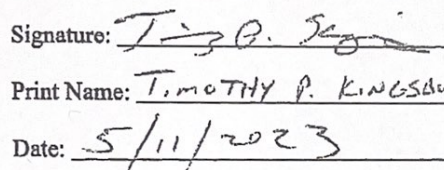 Signature:
Print Name: TIMOTHY P. KINGSBU
Date: 5/11/2023